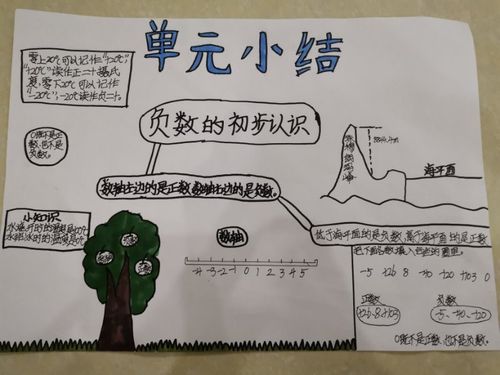 单元小结
零上20℃可以记作“+20℃”,
“+20℃”读作正二十摄氏
度,零下20℃可以记作
“-20℃”,-20℃读作负二十。
0既不是正
数,也不是
负数。
负数的初步认识
珠穆朗玛峰
海平面
数轴右边的是正数,数轴左边的是负数。
低于海平面的是负数,高于海平面的是正数
小知识
数轴
-4 -3 -2 -1 0 1 2 3 4 5
-5 +26 8 -40 -120 +103 0
正数
负数
+26、8、+103
-5、-40、-120
0既不是正数,也不是负数。